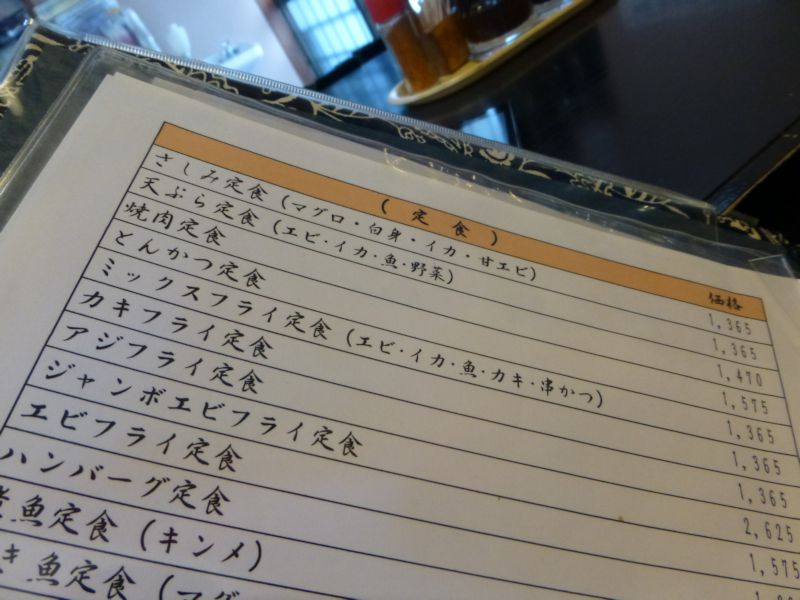 （ 定 食 ） 価格
さしみ定食（マグロ・白身・イカ・甘エビ） 1,365
天ぷら定食（エビ・イカ・魚・野菜） 1,365
焼肉定食 1,470
とんかつ定食 1,575
ミックスフライ定食（エビ・イカ・魚・カキ・串かつ） 1,365
カキフライ定食 1,365
アジフライ定食 1,365
ジャンボエビフライ定食 2,625
エビフライ定食 1,575
ハンバーグ定食
煮魚定食（キンメ）
き魚定食（マグ